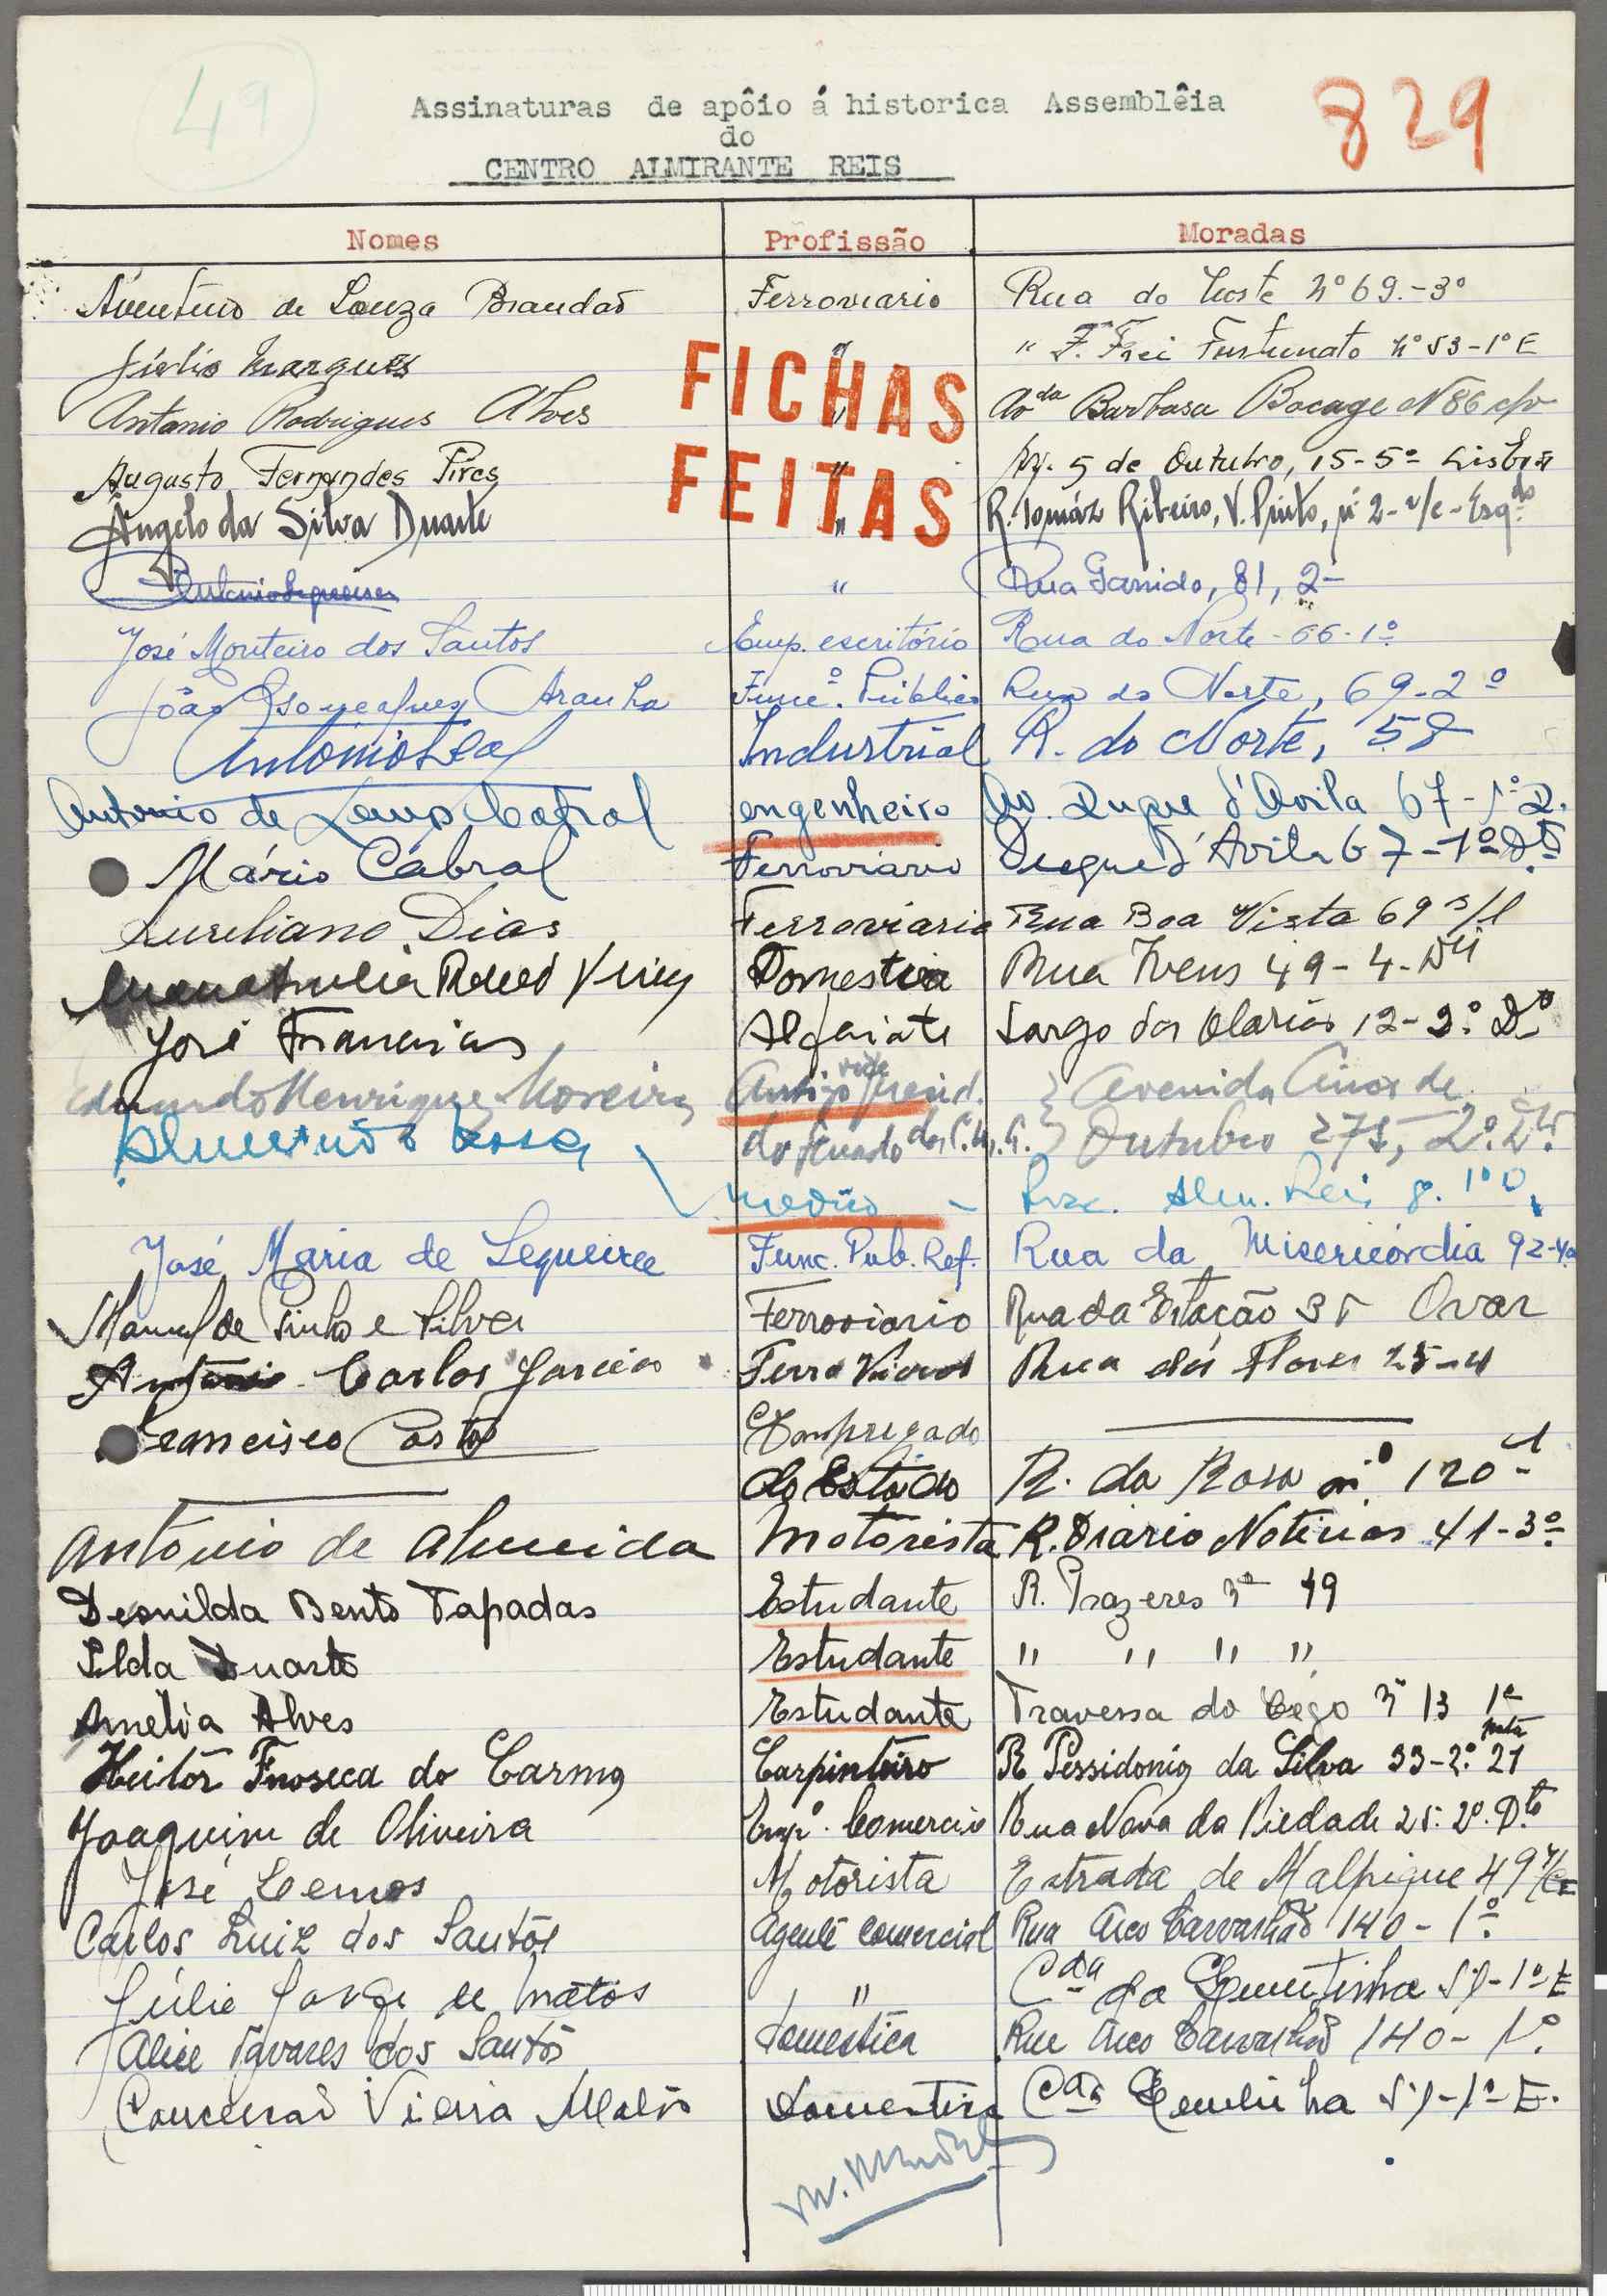 49
829
Assinaturas de apôio á historica Assemblêia
do
CENTRO ALMIRANTE REIS
Nomes Profissão Moradas
de Souza Brandão Ferroviario Rua do Nº 69.-3º
Júlio Marques " " F. Frei Fortunato nº 53-1º E
Antonio Rodrigues Alves " Avda Barbosa Bocage Nº 86 c/v
Augusto Fernandes Pires " Av. 5 de Outubro, 15-5º Lisboa
Ângelo da Silva Duarte " R. Tomáz Ribeiro, V. Pinto, nº 2-r/c-Esqdo
FICHAS
FEITAS
" Rua Garrido, 81, 2º
José Monteiro dos Santos Emp. escritório Rua do Norte-66-1º
João Gonçalves Aranha Funcº. Público Rua do Norte, 69-2º
António Leal Industrial R. do Norte, 58
Antonio de Cabral engenheiro Av. Duque d'Avila 67-1º D.
Mário Cabral Ferroviário Duque d'Avila 67-1º Dto
Aureliano Dias Ferroviario Rua Boa Vista 69 s/l
Domestica Rua Ivens 49-4-Dto
José Francisco Alfaiate Largo das Olarias 12-2º. Dto
Eduardo Henriques Moreira Antigo vice presid. Avenida Cinco de
do Senado da C.M. Outubro 275, 2º. Dto.
Rosa
médico Alm. Reis 8. 1º D.
José Maria de Sequeira Func. Pub. Ref. Rua da Misericórdia 92-4º
Manuel de Pinho e Silva Ferroviario Rua da Estação Ovar
Antonio Carlos Garcia Ferro Viario Rua das Flores 25-4
Francisco Costa Empregado
do Estado R. da Rosa nº 120-1
António de Almeida Motorista R. Diario Noticias 41-3º
Deonilda Bento Tapadas Estudante R. Prazeres nº 49
Ilda Duarte Estudante " " " "
Amélia Alves Estudante Travessa do Cego nº 13 1º
Heitôr Fnoseca do Carmo Carpinteiro R Possidonio da Silva 33-2º. porta 21
Joaquim de Oliveira Empº. Comercio Rua Nova da Piedade 25. 2º. Dto
José Lemos Motorista Estrada de Malpique 49 r/c E
Carlos Luiz dos Santos Agente comercial Rua Arco Carvalhão 140-1º.
Júlio Jorge de Matos " Cda da Quintinha 1º E
Alice Tavares dos Santos domestica Rua Arco Carvalhão 140-1º.
Conceicão Vieira Matos Domestica Cda Quintinha 1º E.